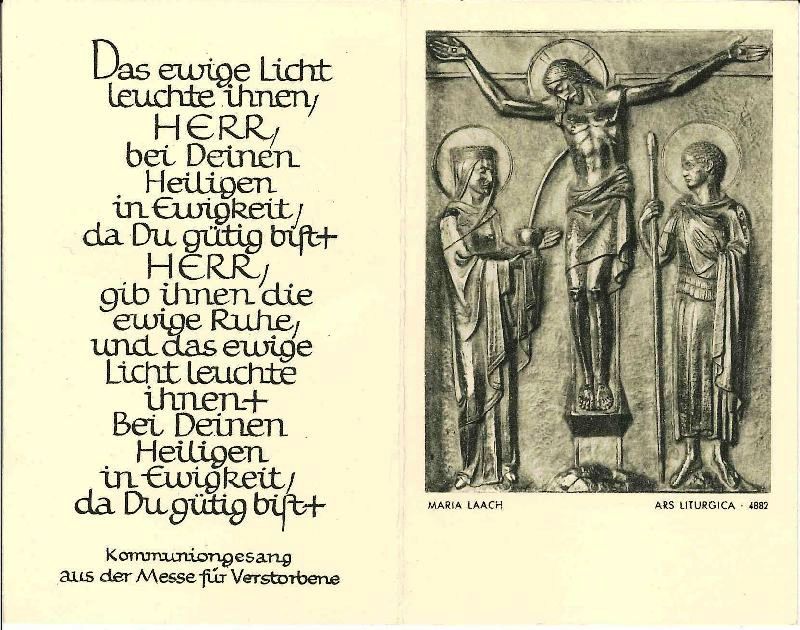 Das ewige Licht
leuchte ihnen,
HERR,
bei Deinen
Heiligen
in Ewigkeit,
da Du gütig bist+
HERR,
gib ihnen die
ewige Ruhe,
und das ewige
Licht leuchte
ihnen+
Bei Deinen
Heiligen
in Ewigkeit,
da Du gütig bist+
Kommuniongesang
aus der Messe für Verstorbene
MARIA LAACH
ARS LITURGICA · 4882